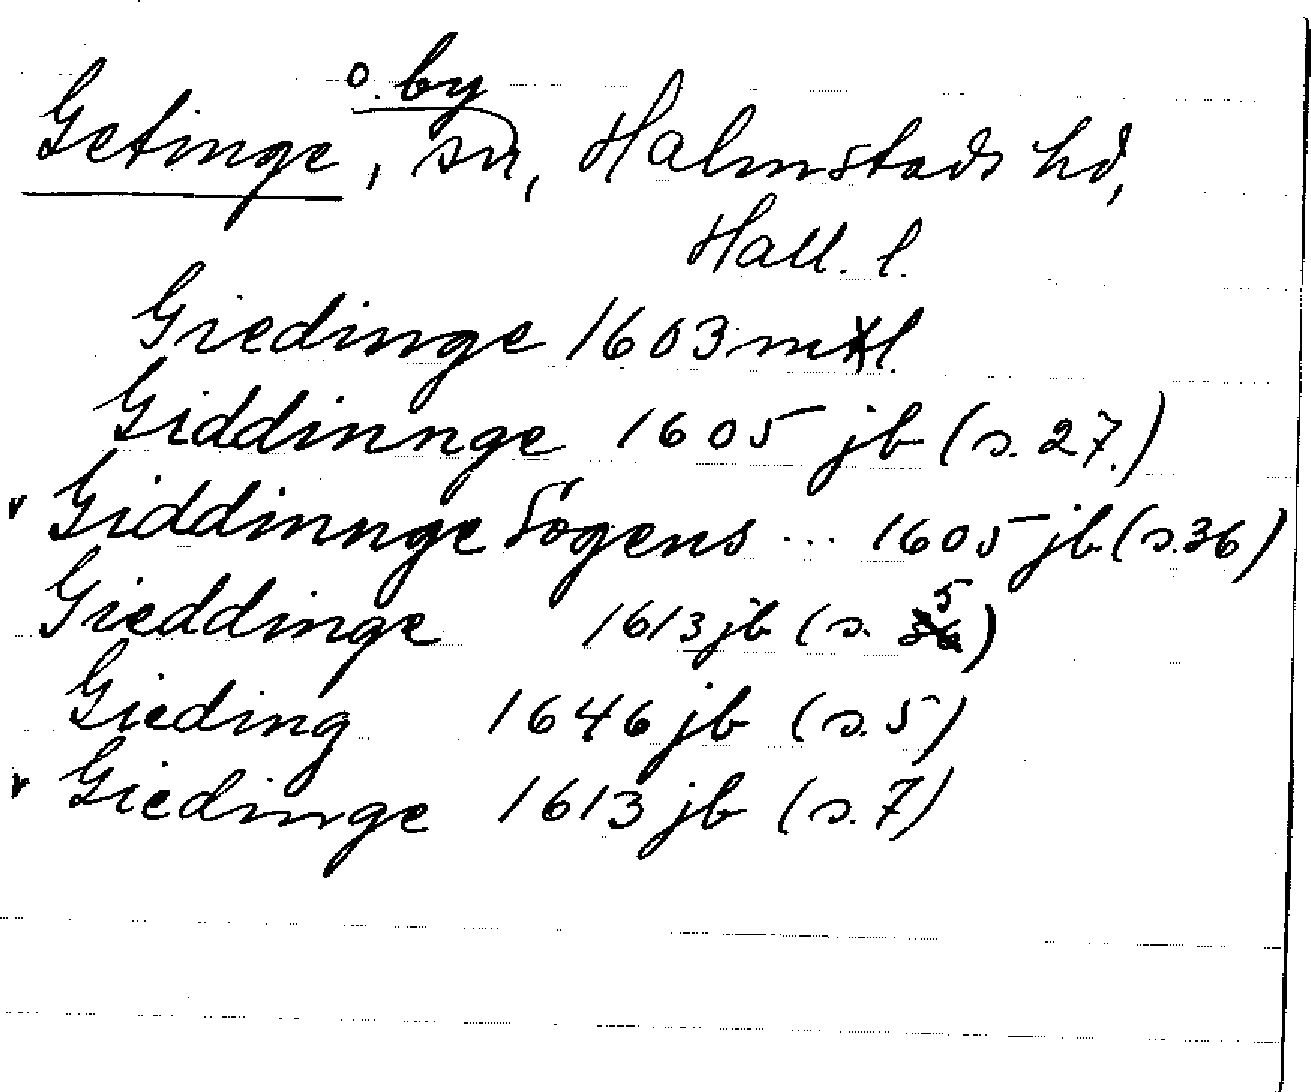 Getinge, sn, o. by Halmstads hd,
Hall. l.
Giedinge 1603 mtl.
Giddinnge 1605 jb (s. 27.)
v Giddinnge Sogens ... 1605 jb. (s. 36)
Gieddinge 1613 jb (s. 5)
Gieding 1646 jb (s. 5)
v Giedinge 1613 jb (s. 7)